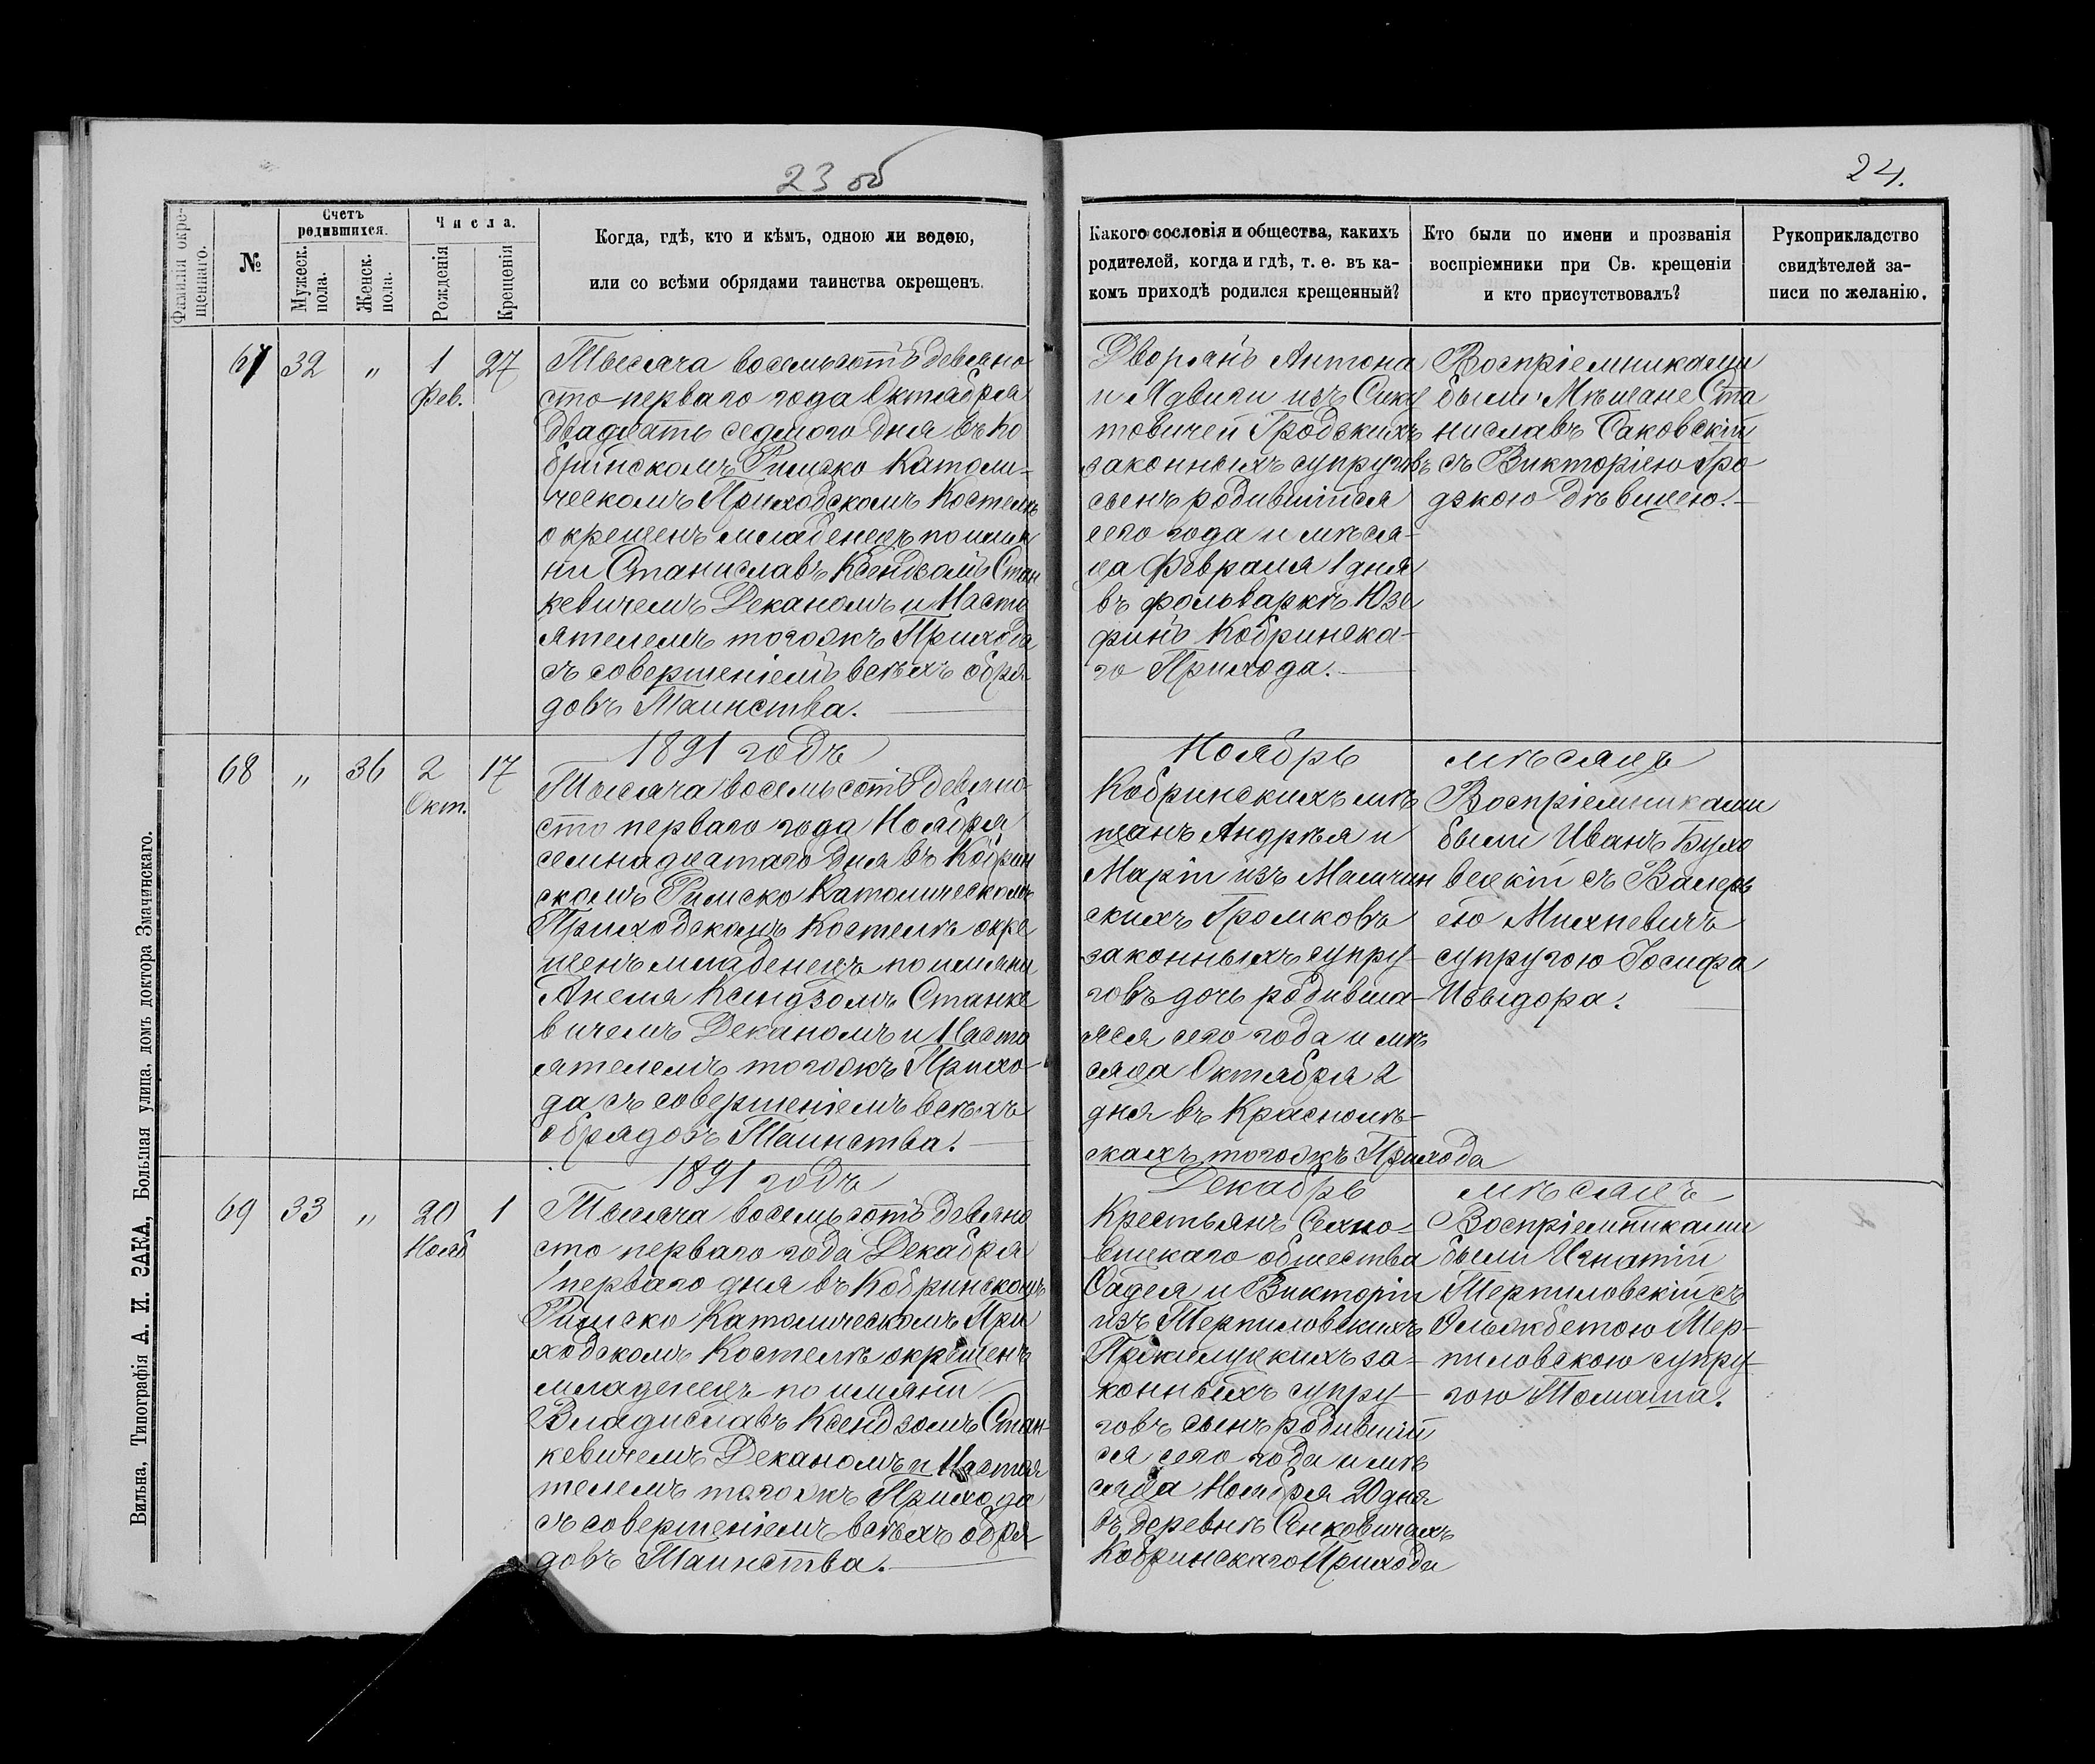 23 об
24.
Фамилія окре-
щеннаго.
№
Счетъ
родившихся.
Мужеск.
пола.
Женск.
пола.
Числа.
Рожденія
Крещенія
Когда, гдѣ, кто и кѣмъ, одною ли водою,
или со всѣми обрядами таинства окрещенъ.
Какого сословія и общества, какихъ
родителей, когда и гдѣ, т. е. въ ка-
комъ приходѣ родился крещенный?
Кто были по имени и прозванія
воспріемники при Св. крещеніи
и кто присутствовалъ?
Рукоприкладство
свидѣтелей за-
писи по желанію.
67 32 „ 1 27
Фев.
Тысяча восемьсотъ девяно
сто перваго года Октября
двадцать седмого дня въ Ко
бринскомъ Римско Католи-
ческомъ Приходскомъ Костелѣ
окрещенъ младенецъ по име
ни Станиславъ Ксендзомъ Стан
кевичемъ Деканомъ и Насто
ятелемъ тогожъ Прихода
съ совершеніемъ всѣхъ обря
довъ Таинства.
Дворянъ Антона
и Ядвиги изъ
товичей Гродзкихъ
законныхъ супруговъ
сынъ родившійся
сего года и мѣся-
ца Февраля 1 дня
въ фольваркѣ Юзе
финъ Кобринска-
го Прихода.
Воспріемниками
были Мѣщане Ста
ниславъ Саковскій
съ Викторіею Гро
дзкою дѣвицею.
68 „ 36 2 17
Окт.
1891 годъ
Тысяча восемьсотъ девяно
сто перваго года Ноября
семнадцатаго дня въ Кобрин
скомъ Римско Католическомъ
Приходскомъ Костелѣ окре
щенъ младенецъ по имяни
Анеля Ксендзомъ Станке
вичемъ Деканомъ и Насто
ятелемъ тогожъ Прихо-
да съ совершеніемъ всѣхъ
обрядовъ Таинства.
Ноябрь
Кобринскихъ мѣ
щанъ Андрея и
Маріи изъ Маличин
скихъ Громковъ
законныхъ супру-
говъ дочь родивша-
яся сего года и мѣ
сяца Октября 2
дня въ
скахъ тогожъ Прихода
мѣсяцъ
Воспріемниками
были Иванъ Бухо
вецкій съ Валерь
ею Михневичъ
супругою Іосифа
Изыдора.
69 33 „ 20 1
Нояб
1891 годъ
Тысяча восемьсотъ девяно
сто перваго года Декабря
перваго дня въ Кобринскомъ
Римско Католическомъ При
ходскомъ Костелѣ окрещенъ
младенецъ по имяни
Владиславъ Ксендзомъ Стан-
кевичемъ Деканомъ и Настоя
телемъ тогожъ Прихода
съ совершеніемъ всѣхъ обря
довъ Таинства.
Декабрь
Крестьянъ Сѣхно-
вицкаго общества
Фадея и Викторіи
изъ Терпиловскихъ
за-
конныхъ супру-
говъ сынъ родившій
ся сего года и мѣ
сяца Ноября 20 дня
въ деревнѣ Сенковичахъ
Кобринскаго Прихода
мѣсяцъ
Воспріемниками
были Игнатій
Терпиловскій съ
Ользбетою Тер-
пиловскою супру-
гою Томаша.
Вильна, Типографія А. И. ЗАКА, Большая улица, домъ доктора Змачинскаго.